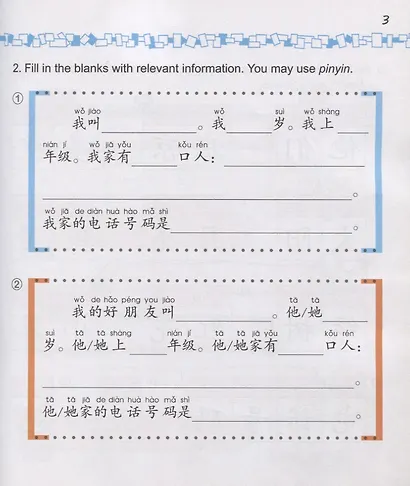 3
2. Fill in the blanks with relevant information. You may use pinyin.
①
wǒ jiào wǒ suì wǒ shàng
我叫______。我______岁。我上
nián jí wǒ jiā yǒu kǒu rén
年级。我家有______口人：
______。
wǒ jiā de diàn huà hào mǎ shì
我家的电话号码是______。
②
wǒ de hǎo péng you jiào tā tā
我的好朋友叫______。他/她______
suì tā tā shàng nián jí tā tā jiā yǒu kǒu rén
岁。他/她上______年级。他/她家有______口人：
______。
tā tā jiā de diàn huà hào mǎ shì
他/她家的电话号码是______。